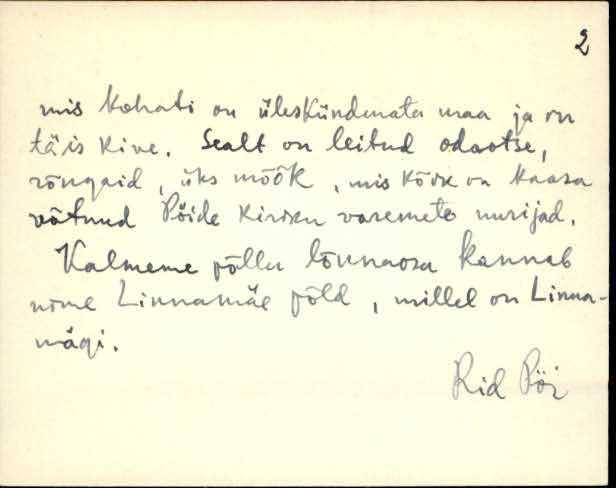 2
mis kohati on üleskündmata maa ja on
täis kive. Sealt on leitud odaotse,
rõngaid, üks mõõk, mis kõik on kaasa
võtnud Pöide kiriku varemete uurijad.
Kalmeme põllu lõunaosa kannab
nime Linnamäe põld, millel on Linna-
mägi.
Rid Pöi